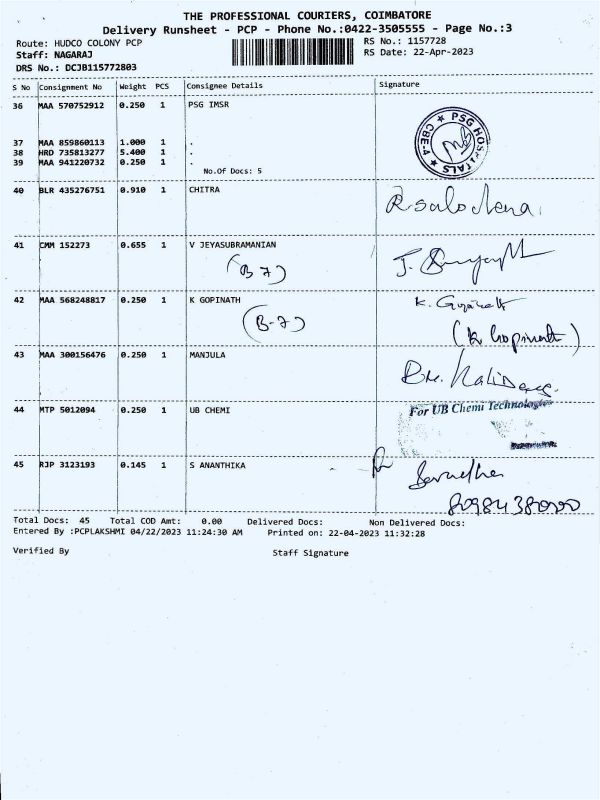 THE PROFESSIONAL COURIERS, COIMBATORE
Delivery Runsheet - PCP - Phone No.:0422-3505555 - Page No.:3
Route: HUDCO COLONY PCP RS No.: 1157728
Staff: NAGARAJ RS Date: 22-Apr-2023
DRS No.: DCJB115772803
S No Consignment No Weight PCS Consignee Details Signature
36 MAA 570752912 0.250 1 PSG IMSR
PSG HOSPITALS CBE-4
37 MAA 859860113 1.000 1 .
38 HRD 735813277 5.400 1 .
39 MAA 941220732 0.250 1 .
No.Of Docs: 5
40 BLR 435276751 0.910 1 CHITRA
41 CMM 152273 0.655 1 V JEYASUBRAMANIAN
(B 7)
42 MAA 568248817 0.250 1 K GOPINATH K. Gopinath
(B-7) (K Gopinath)
43 MAA 300156476 0.250 1 MANJULA
44 MTP 5012094 0.250 1 UB CHEMI For UB Chemi Technologies
45 RJP 3123193 0.145 1 S ANANTHIKA
Total Docs: 45 Total COD Amt: 0.00 Delivered Docs: Non Delivered Docs:
Entered By :PCPLAKSHMI 04/22/2023 11:24:30 AM Printed on: 22-04-2023 11:32:28
Verified By Staff Signature